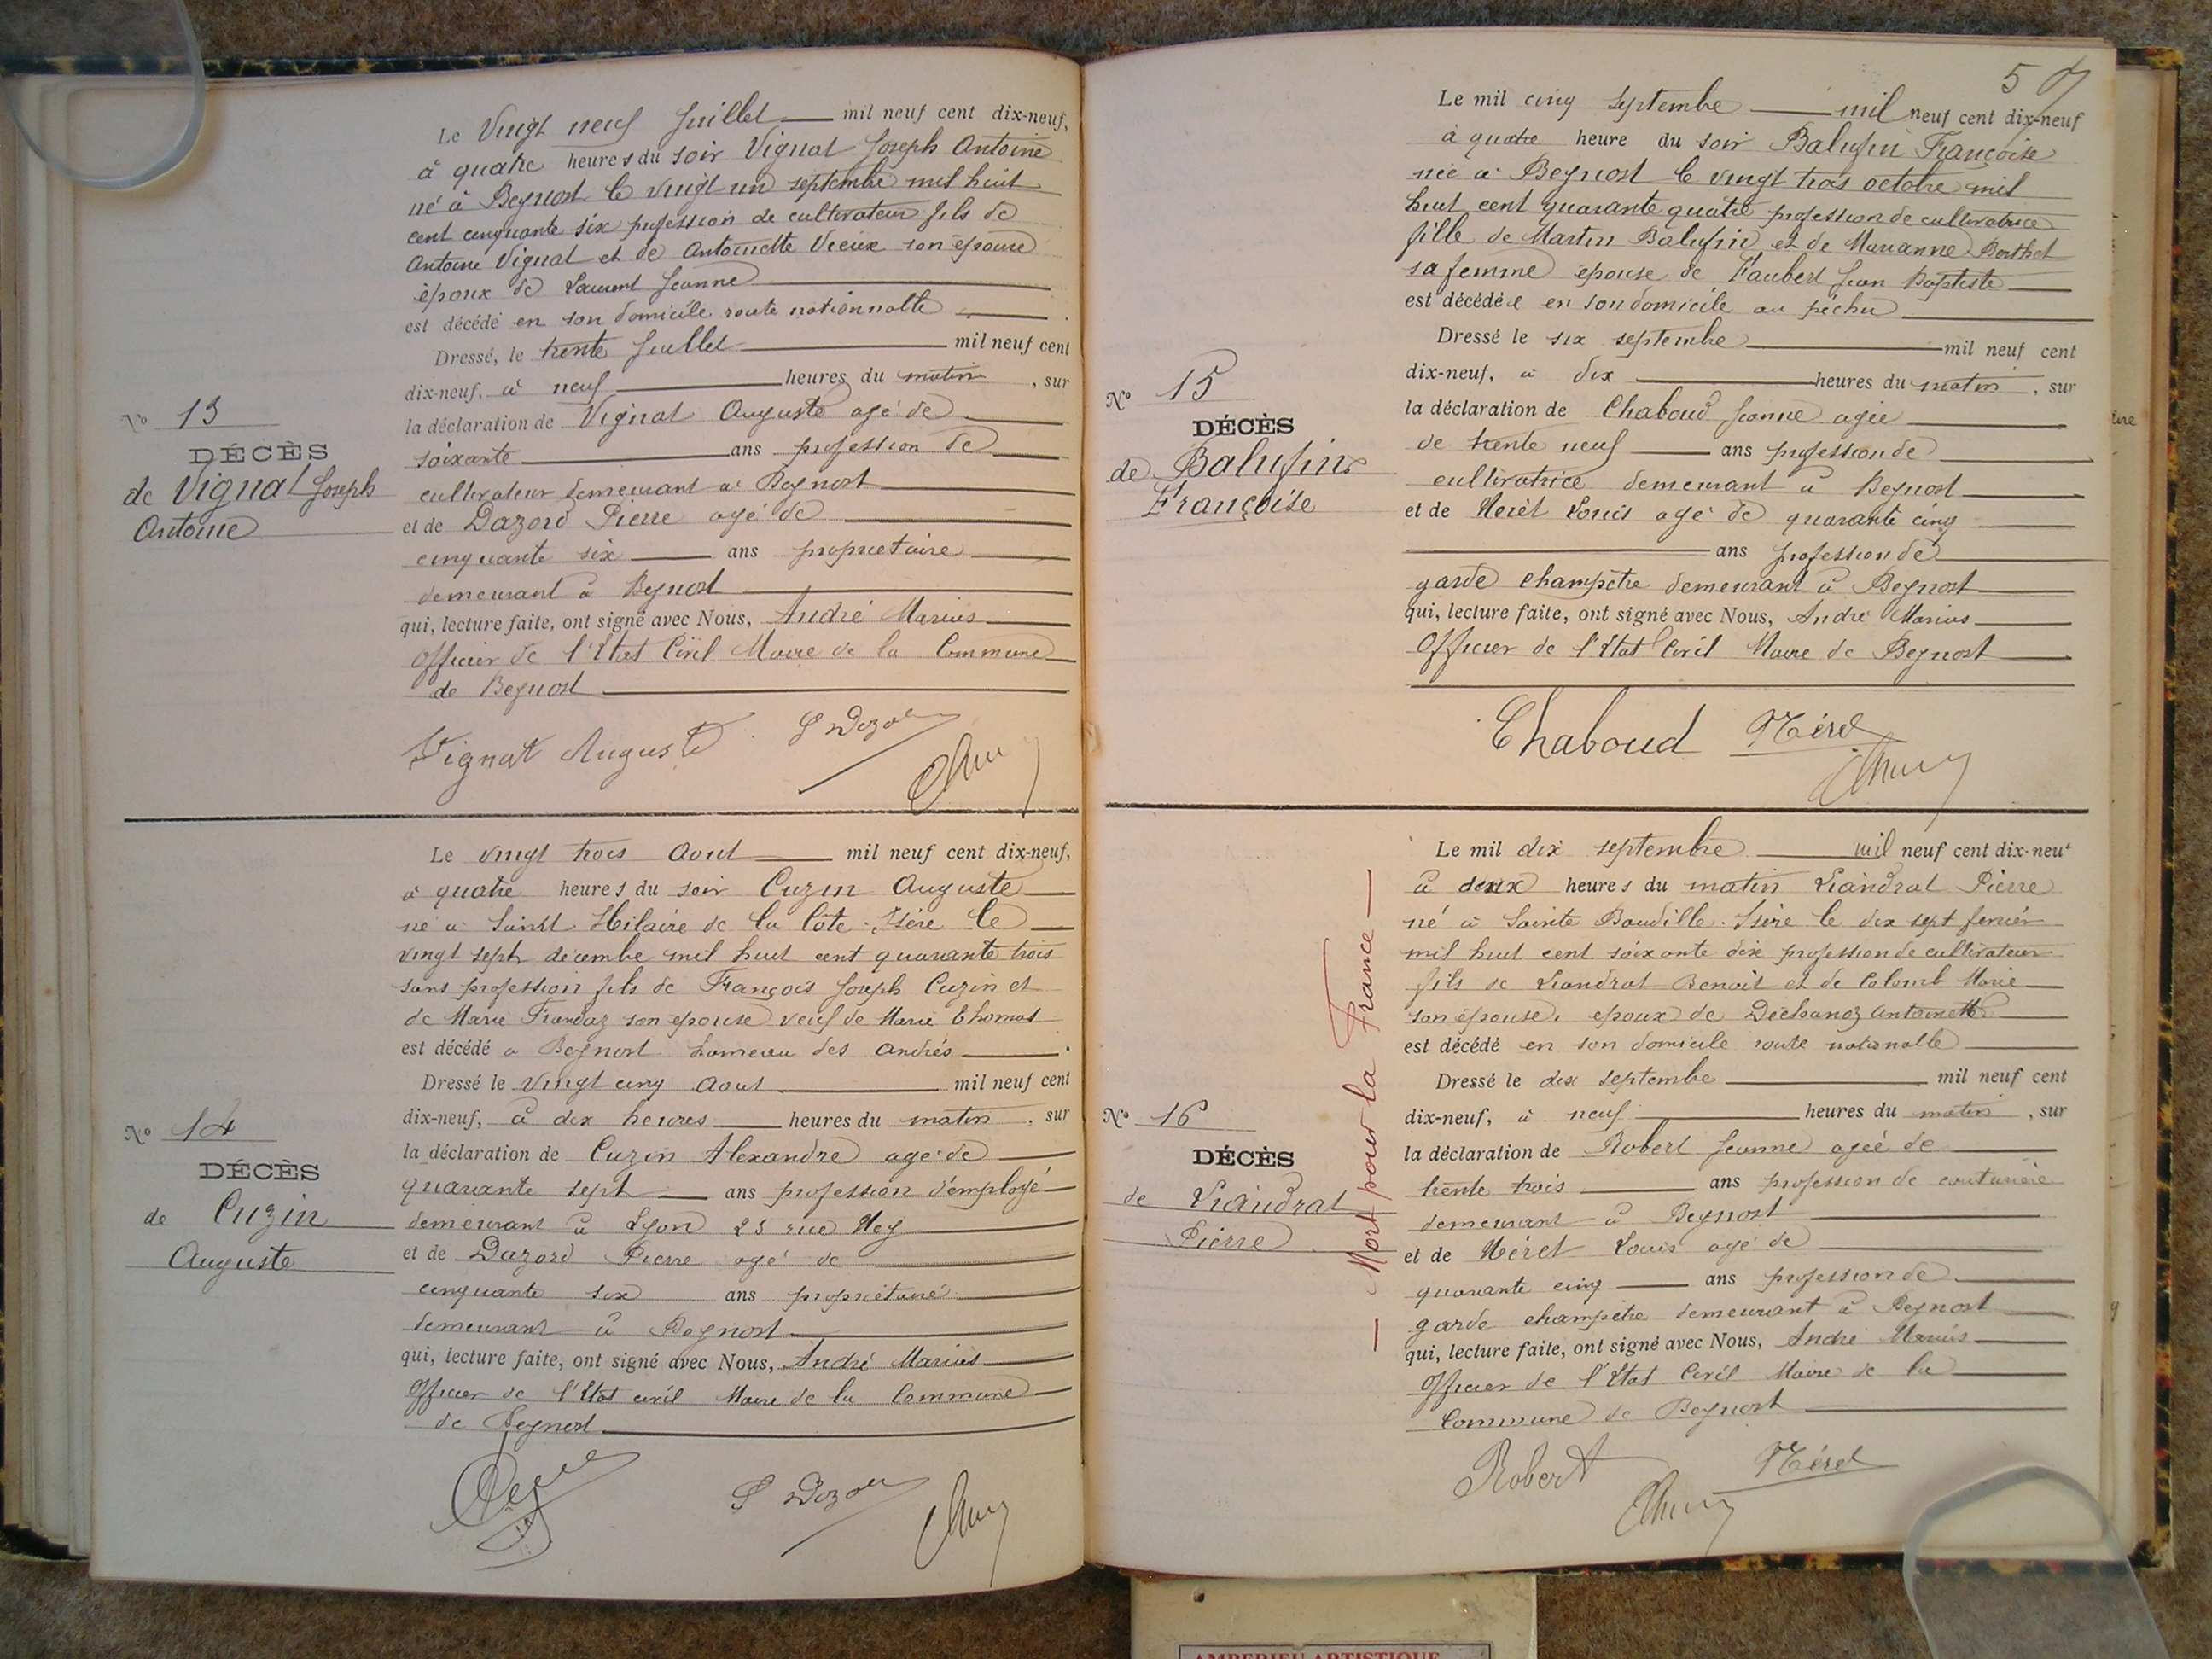 Le Vingt neuf Juillet mil neuf cent dix-neuf,
à quatre heures du soir Vignat Joseph Antoine
né à Beynost le vingt un septembre mil huit
cent cinquante six profession de cultivateur fils de
Antoine Vignat et de Antoinette Vieux son épouse
époux de Laurent Jeanne
est décédé en son domicile route nationnalle
Dressé, le trente Juillet mil neuf cent
dix-neuf, à neuf heures du matin, sur
la déclaration de Vignat Auguste agé de
soixante ans profession de
cultivateur demeurant à Beynost
et de Dazord Pierre agé de
cinquante six ans propriétaire
demeurant à Beynost
qui, lecture faite, ont signé avec Nous, André Marius
Officier de l'Etat Civil Maire de la Commune
de Beynost
No 13
DÉCÈS
de Vignat Joseph
Antoine
Vignat Auguste P Dazord
Le vingt trois Aout mil neuf cent dix-neuf,
à quatre heures du soir Cuzin Auguste
né à Saint Hilaire de la Côte - Isère le
vingt sept décembre mil huit cent quarante trois
sans profession fils de François Joseph Cuzin et
de Marie Frandaz son épouse veuf de Marie Thomas
est décédé à Beynost hameau des Andrés
Dressé le Vingt cinq Aout mil neuf cent
dix-neuf, à dix heures heures du matin, sur
la déclaration de Cuzin Alexandre agé de
quarante sept ans profession d'employé
demeurant à Lyon 23 rue Ney
et de Dazord Pierre agé de
cinquante six ans propriétaire
demeurant à Beynost
qui, lecture faite, ont signé avec Nous, André Marius
Officier de l'Etat civil Maire de la Commune
de Beynost
No 14
DÉCÈS
de Cuzin
Auguste
P Dazord
5
Le mil cinq septembre mil neuf cent dix-neuf
à quatre heure du soir Balufin Françoise
née à Beynost le vingt trois octobre mil
huit cent quarante quatre profession de cultivatrice
fille de Martin Balufin et de Marianne Berthet
sa femme épouse de Faubert Jean Baptiste
est décédée en son domicile au péchu
Dressé le six septembre mil neuf cent
dix-neuf, à dix heures du matin, sur
la déclaration de Chaboud Jeanne agée
de trente neuf ans profession de
cultivatrice demeurant à Beynost
et de Méret Louis agé de quarante cinq
ans profession de
garde champêtre demeurant à Beynost
qui, lecture faite, ont signé avec Nous, André Marius
Officier de l'Etat Civil Maire de Beynost
No 15
DÉCÈS
de Balufin
Françoise
Chaboud Méret
Le mil dix septembre mil neuf cent dix-neuf
à deux heures du matin Liandrat Pierre
né à Sainte Baudille - Isère le dix sept fevrier
mil huit cent soixante dix profession de cultivateur
fils de Liandrat Benoit et de Colomb Marie
son épouse, epoux de Déchanoz Antoinette
est décédé en son domicile route nationalle
Dressé le dix septembre mil neuf cent
dix-neuf, à neuf heures du matin, sur
la déclaration de Robert Jeanne agée de
trente trois ans profession de couturière
demeurant à Beynost
et de Méret Louis agé de
quarante cinq ans profession de
garde champêtre demeurant à Beynost
qui, lecture faite, ont signé avec Nous, André Marius
Officier de l'Etat Civil Maire de la
Commune de Beynost
No 16
DÉCÈS
de Liandrat
Pierre
— Mort pour la France —
Robert Méret
AMBERIEU ARTISTIQUE